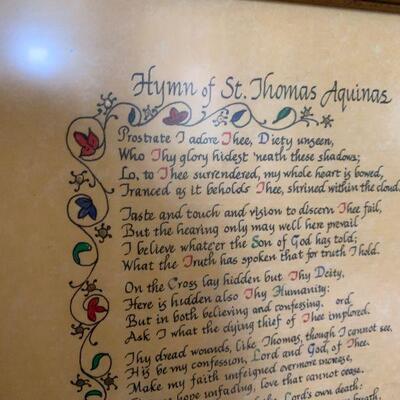 Hymn of St. Thomas Aquinas
Prostrate I adore Thee, Diety unseen,
Who Thy glory hidest 'neath these shadows;
Lo, to Thee surrendered, my whole heart is bowed,
Tranced as it beholds Thee, shrined within the cloud.
Taste and touch and vision to discern Thee fail,
But the hearing only may well here prevail
I believe whate'er the Son of God has told;
What the Truth has spoken that for truth I hold.
On the Cross lay hidden but Thy Deity,
Here is hidden also Thy Humanity:
But in both believing and confessing, ord
Ask I what the dying thief of Thee implored.
Thy dread wounds, like Thomas, though I cannot see,
His be my confession, Lord and God, of Thee.
Make my faith unfeigned evermore increase,
hope unfading, love that cannot cease.
the Lord's own death:
breath,